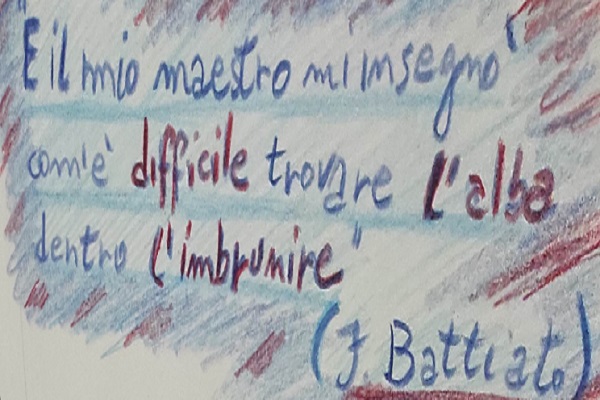 "E il mio maestro mi insegnò
com'è difficile trovare l'alba
dentro l'imbrunire"
(F. Battiato)